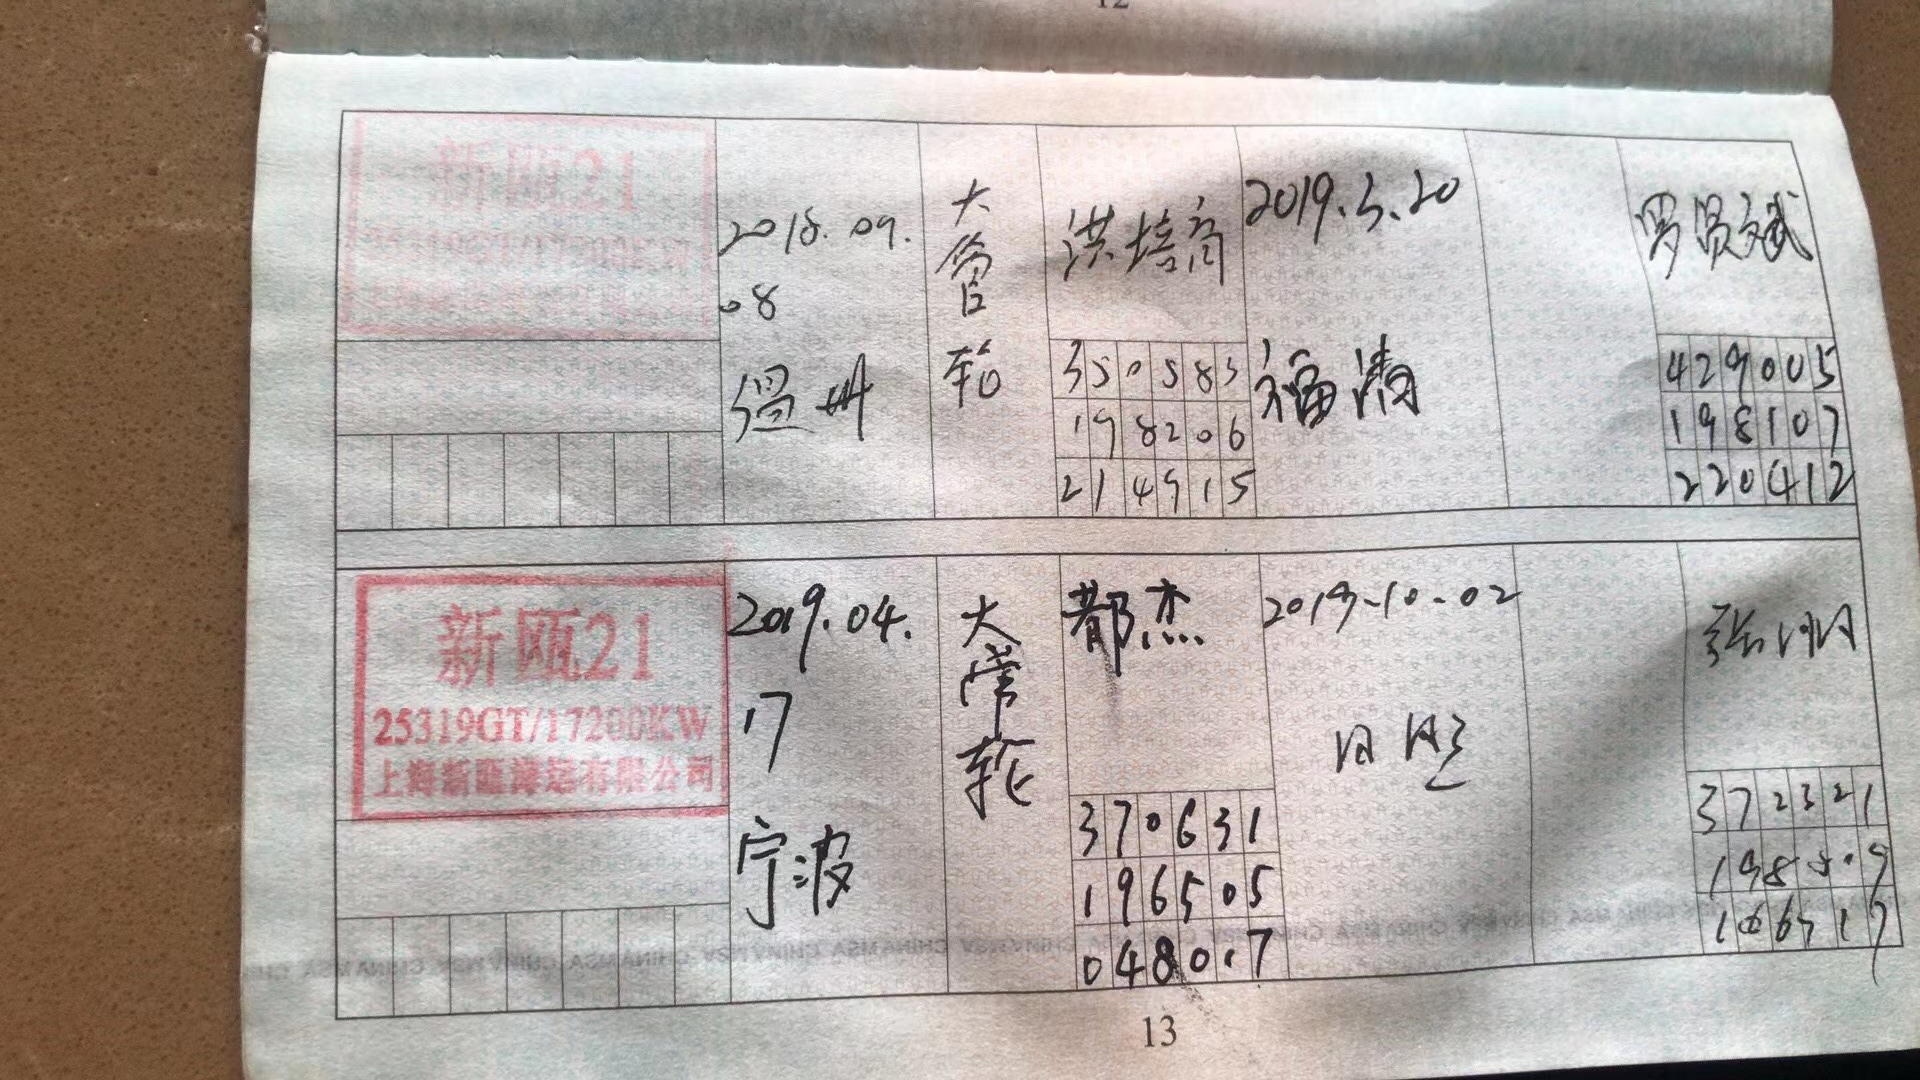 12
新瓯21
25319GT/17200KW
2018.09.
08
温州
大管轮
洪培商
350583
198206
214915
2019.3.20
福清
罗贤斌
429005
198107
220412
新瓯21
25319GT/17200KW
上海新瓯海运有限公司
2019.04.
17
宁波
大管轮
都杰
370631
196505
048017
2019-10-02
日照
372321
CHINAMSA CHINAMSA CHINAMSA
13